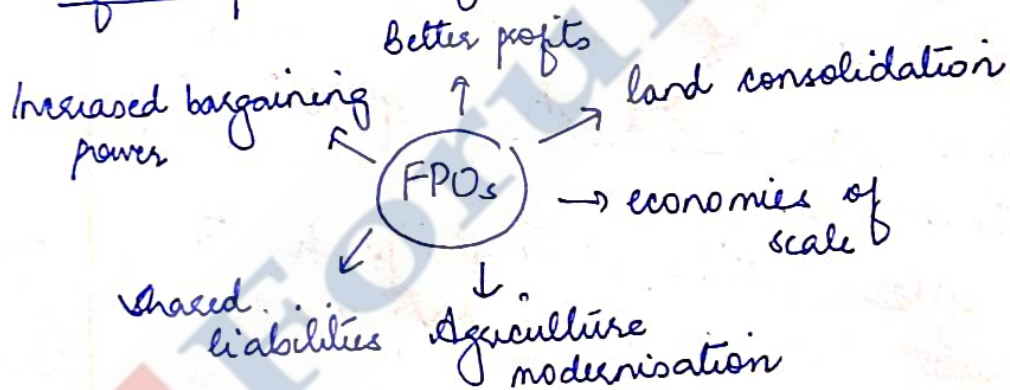 Better profits
Increased bargaining
power
land consolidation
FPOs
economies of
scale
shared
liabilities
Agriculture
modernisation
Forum